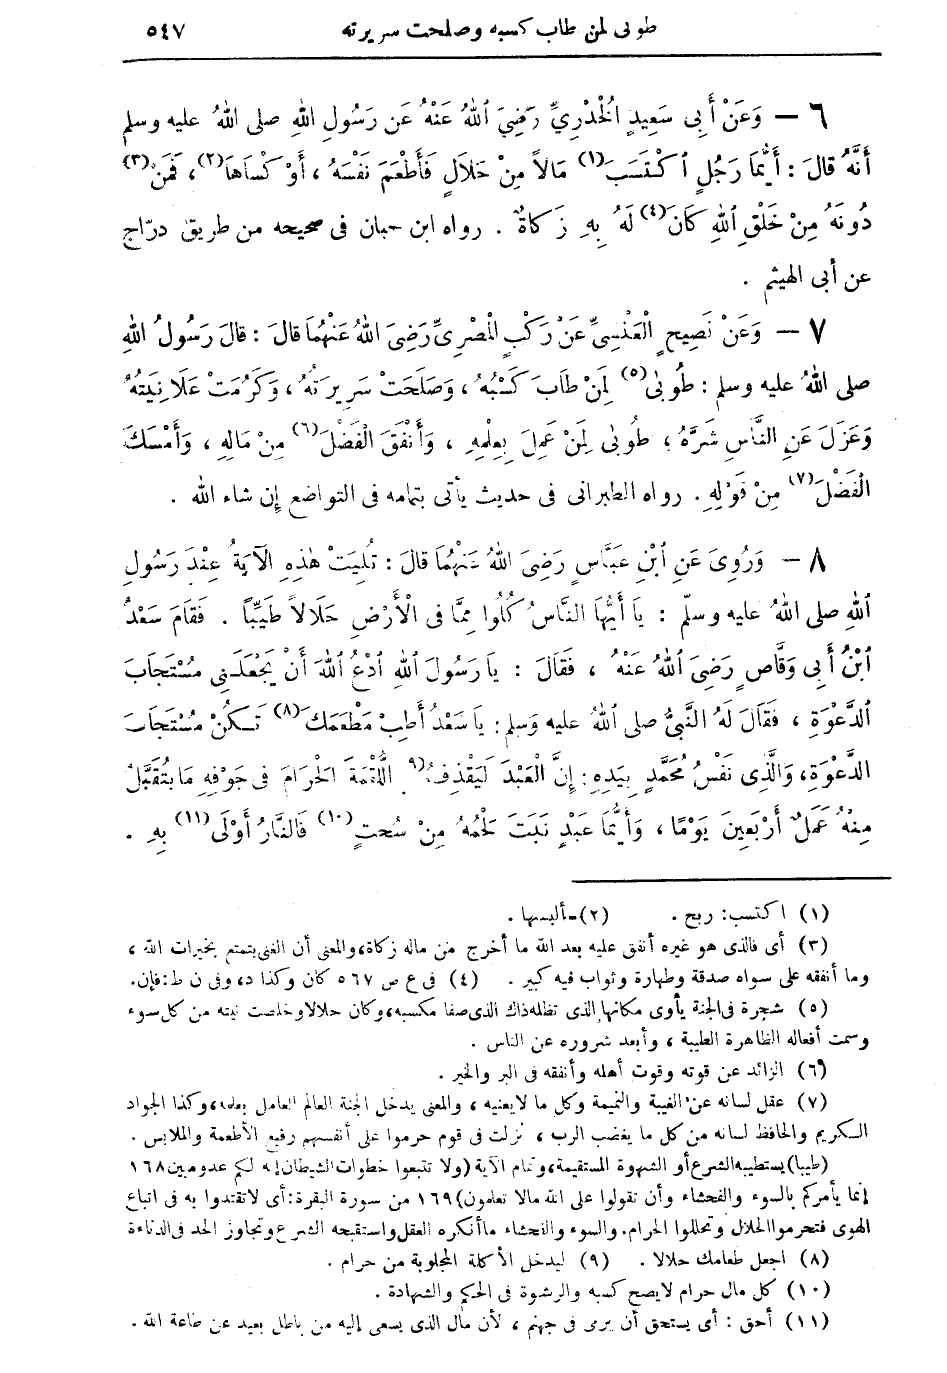 طوبى لمن طاب كسبه وصلحت سريرته ٥٤٧
٦ — وَعَنْ أَبِى سَعِيدٍ الْخُدْرِيِّ رَضِيَ اللهُ عَنْهُ عَن رَسُولِ اللهِ صلى اللهُ عليه وسلم
أَنَّهُ قالَ : أَيُّمَا رَجُلٍ اكْتَسَبَ(١) مَالاً مِنْ حَلَالٍ فَأَطْعَمَ نَفْسَهُ ، أَوْ كَسَاهَا(٢) ، فَمَنْ(٣)
دُونَهُ مِنْ خَلْقِ اللهِ كَانَ(٤) لَهُ بِهِ زَكَاةٌ . رواه ابن حبان فى صحيحه من طريق درّاج
عن أبى الهيثم .
٧ — وَعَنْ نَصِيحٍ الْعَنْسِيِّ عَنْ رَكْبٍ الْمِصْرِيِّ رَضِيَ اللهُ عَنْهُمَا قالَ : قالَ رَسُولُ اللهِ
صلى اللهُ عليه وسلم : طُوبَى(٥) لِمَنْ طَابَ كَسْبُهُ ، وَصَلَحَتْ سَرِيرَتُهُ ، وَكَرُمَتْ عَلَانِيَتُهُ
وَعَزَلَ عَنِ النَّاسِ شَرَّهُ ؛ طُوبَى لِمَنْ عَمِلَ بِعِلْمِهِ ، وَأَنْفَقَ الْفَضْلَ(٦) مِنْ مَالِهِ ، وَأَمْسَكَ
الْفَضْلَ(٧) مِنْ قَوْلِهِ . رواه الطبرانى فى حديث يأتى بتمامه فى التواضع إن شاء الله .
٨ — وَرُوِىَ عَنِ ابْنِ عَبَّاسٍ رَضِىَ اللهُ عَنْهُمَا قالَ : تُلِيَتْ هٰذِهِ الْآيَةُ عِنْدَ رَسُولِ
اللهِ صلى اللهُ عليه وسلّم : يَا أَيُّهَا النَّاسُ كُلُوا مِمَّا فِى الْأَرْضِ حَلَالاً طَيِّبًا . فَقَامَ سَعْدُ
ابْنُ أَبِى وَقَّاصٍ رَضِىَ اللهُ عَنْهُ ، فَقَالَ : يَا رَسُولَ اللهِ ادْعُ اللهَ أَنْ يَجْعَلَنِى مُسْتَجَابَ
الدَّعْوَةِ ، فَقَالَ لَهُ النَّبِىُّ صلى اللهُ عليه وَسلم : يَا سَعْدُ أَطِبْ مَطْعَمَكَ(٨) تَكُنْ مُسْتَجَابَ
الدَّعْوَةِ، وَالَّذِى نَفْسُ مُحَمَّدٍ بِيَدِهِ : إِنَّ الْعَبْدَ لَيَقْذِفُ(٩) اللُّقْمَةَ الْحَرَامَ فِى جَوْفِهِ مَا يُتَقَبَّلُ
مِنْهُ عَمَلُ أَرْبَعِينَ يَوْمًا ، وَأَيُّمَا عَبْدٍ نَبَتَ لَحْمُهُ مِنْ سُحتٍ(١٠) فَالنَّارُ أَوْلَى(١١) بِهِ .
(١) اكتسب: ربح . (٢) ألبسها .
(٣) أى فالذى هو غيره أنفق عليه بعد الله ما أخرج من ماله زكاة، والمعنى أن الغنى يتمتع بخيرات الله ،
وما أنفقه على سواه صدقة وطهارة وثواب فيه كبير . (٤) فى ع ص ٥٦٧ كان وكذا د، وفى ن ط: فإن.
(٥) شجرة فى الجنة يأوى مكانها الذى تظله ذاك الذى صفا مكسبه، وكان حلالا وخلصت نيته من كل سوء
وسمت أفعاله الظاهرة الطيبة ، وأبعد شروره عن الناس .
(٦) الزائد عن قوته وقوت أهله وأنفقه فى البر والخير .
(٧) عقل لسانه عن الغيبة والنميمة وكل ما لا يعنيه ، والمعنى يدخل الجنة العالم العامل بعلمه، وكذا الجواد
الكريم والحافظ لسانه من كل ما يغضب الرب ، نزلت فى قوم حرموا على أنفسهم رفيع الأطعمة والملابس .
(طيبا) يستطيبه الشرع أو الشهوة المستقيمة، وتمام الآية (ولا تتبعوا خطوات الشيطان إنه لكم عدو مبين ١٦٨
إنما يأمركم بالسوء والفحشاء وأن تقولوا على الله مالا تعلمون) ١٦٩ من سورة البقرة: أى لا تقتدوا به فى اتباع
الهوى فتحرموا الحلال وتحللوا الحرام. والسوء والفحشاء ما أنكره العقل واستقبحه الشرع وتجاوز الحد فى الدناءة
(٨) اجعل طعامك حلالا . (٩) ليدخل الأكلة المجلوبة من حرام .
(١٠) كل مال حرام لا يصح كسبه والرشوة فى الحكم والشهادة .
(١١) أحق : أى يستحق أن يرى فى جهنم ، لأن مال الذى يسعى إليه من باطل بعيد عن طاعة الله .